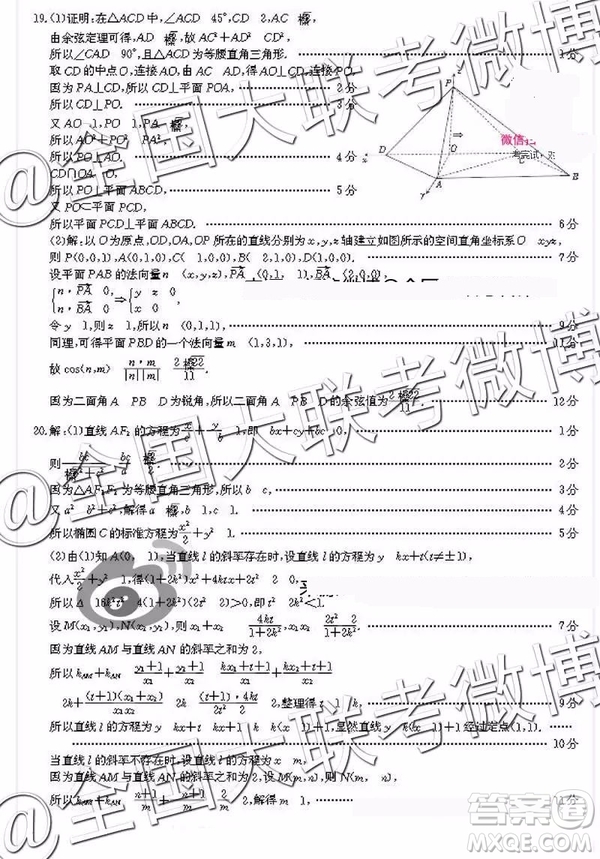 19.(1)证明:在△ACD中,∠ACD 45°,CD 2,AC
由余弦定理可得,AD ,故AC²+AD² CD²,
所以∠CAD 90°,且△ACD为等腰直角三角形. 1分
取CD的中点O,连接AO,由AC AD,得AO⊥CD,连接PO.
因为PA⊥CD,所以CD⊥平面POA, 2分
所以CD⊥PO. 3分
又AO 1,PO 1,PA
所以AO²+PO² PA²,
所以PO⊥AO. 4分
CD∩AO O,
所以PO⊥平面ABCD, 5分
又PO⊂平面PCD,
所以平面PCD⊥平面ABCD. 6分
P
D
O
A
B
微信
(2)解:以O为原点,OD,OA,OP所在的直线分别为x,y,z轴建立如图所示的空间直角坐标系O xyz,
则P(0,0,1),A(0,1,0),C( 1,0,0),B( 2,1,0),D(1,0,0). 7分
设平面PAB的法向量n (x,y,z),PA (0,1, 1),BA (2,0,0),
n·PA 0, y z 0,
n·BA 0 ⇒ x 0,
令y 1,则z 1,所以n (0,1,1), 9分
同理,可得平面PBD的一个法向量m (1,3,1), 11分
故cos⟨n,m⟩ n·m |n||m| 2 22 11.
因为二面角A PB D为锐角,所以二面角A PB D的余弦值为 2 22 11. 12分
20.解:(1)直线AF₂的方程为x/c+y/ b 1,即 bx+cy+bc 0, 1分
则 bc bc
因为△AF₁F₂为等腰直角三角形,所以b c, 3分
又a² b²+c²,解得a ,b 1,
所以椭圆C的标准方程为x²/2+y² 1. 5分
(2)由(1)知A(0, 1),当直线l的斜率存在时,设直线l的方程为y kx+t(t≠±1),
代入x²/2+y² 1,得(1+2k²)x² 4ktx 2t² 2 0,
所以Δ 16k²t² 4(1+2k²)(2t² 2)>0,即t² 2k² 1.
设M(x₁,y₁),N(x₂,y₂),则x₁+x₂ 4kt/1+2k²,x₁x₂ 2t² 2/1+2k². 7分
因为直线AM与直线AN的斜率之和为2,
所以k_AM+k_AN y₁+1/x₁ y₂+1/x₂ kx₁+t+1/x₁ kx₂+t+1/x₂
2k+(t+1)(x₁+x₂)/x₁x₂ 2k (t+1)·4kt/2t² 2 2,整理得t 1 k. 9分
所以直线l的方程为y kx+t kx+1 k k(x 1)+1,显然直线y k(x 1)+1经过定点(1,1).
10分
当直线l的斜率不存在时,设直线l的方程为x m,
因为直线AM与直线AN的斜率之和为2,设M(m,n),则N(m, n),
所以k_AM+k_AN n+1/m n+1/m 2/m 2,解得m 1, 11分
@全国大联考微博
@全国大联考微博
@全国大联考微博
答案圈
MXQE.COM